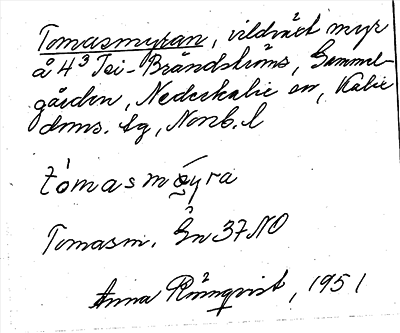 Tomasmyran, vildväxt myr
å 4³ Tei-Brändströms, Gammel-
gården, Nederkalix sn, Kalix
dms. lg, Norrb. l
tómasmýra
Tomasm. En 37 NO
Anna Rönnqvist, 1951